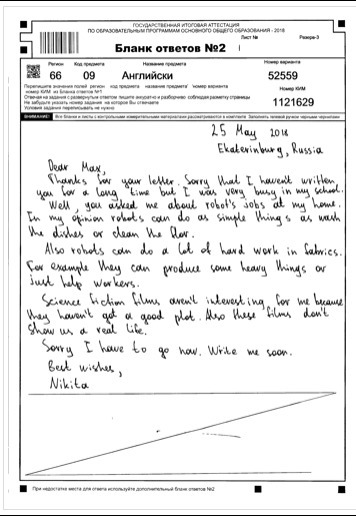 ГОСУДАРСТВЕННАЯ ИТОГОВАЯ АТТЕСТАЦИЯ
ПО ОБРАЗОВАТЕЛЬНЫМ ПРОГРАММАМ ОСНОВНОГО ОБЩЕГО ОБРАЗОВАНИЯ - 2018
Лист № Резерв-3
Бланк ответов №2
Регион Код предмета Название предмета Номер варианта
66 09 Английски 52559
Перепишите значения полей регион код предмета название предмета номер варианта Номер КИМ
номер КИМ из Бланка ответов №1
Отвечая на задания с развернутым ответом пишите аккуратно и разборчиво соблюдая разметку страницы
Не забудьте указать номер задания на которое Вы отвечаете 1121629
Условия задания переписывать не нужно
ВНИМАНИЕ! Все бланки и листы с контрольными измерительными материалами рассматриваются в комплекте Заполнять гелевой ручкой черными чернилами
25 May 2018
Ekaterinburg, Russia
Dear Max,
Thanks for your letter. Sorry that I haven't written
you for a long time but I was very busy in my school.
Well, you asked me about robot's jobs at my home.
In my opinion robots can do as simple things as wash
the dishes or clean the flor.
Also robots can do a lot of hard work in fabrics.
For example they can produce some heavy things or
just help workers.
Science fiction films aren't interesting for me because
they haven't got a good plot. Also these films don't
show us a real life.
Sorry I have to go now. Write me soon.
Best wishes,
Nikita
При недостатке места для ответа используйте дополнительный бланк ответов №2